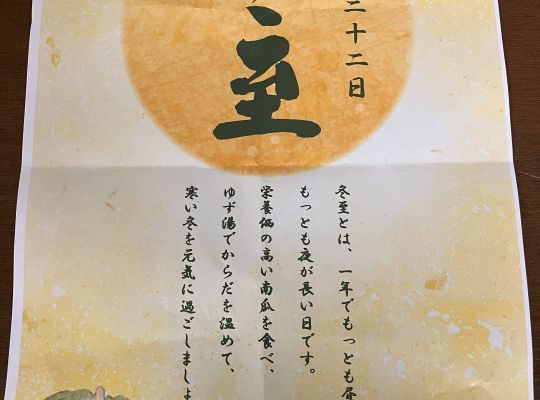 二十二日
至
冬至とは、一年でもっとも昼
もっとも夜が長い日です。
栄養価の高い南瓜を食べ、
ゆず湯でからだを温めて、
寒い冬を元気に過ごしましょ